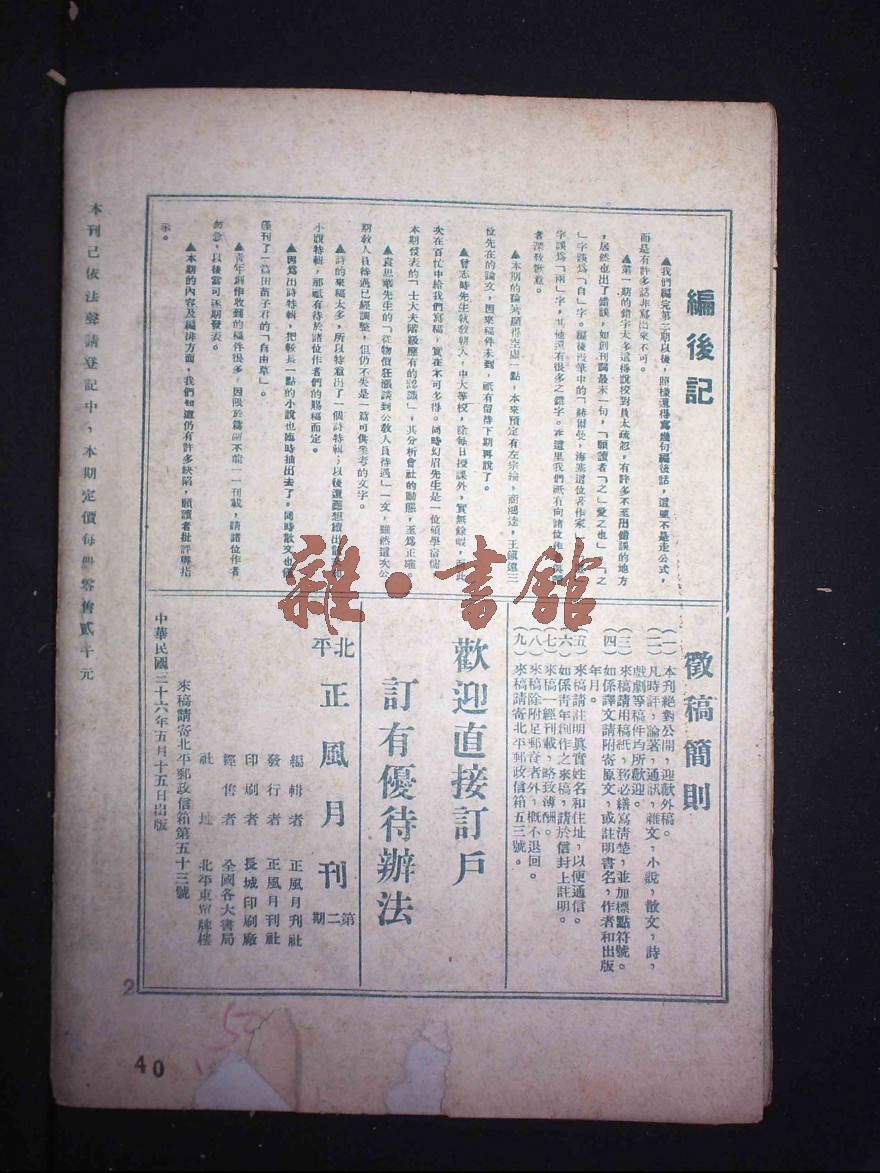 編後記
▲我們編完第二期以後，照樣還得寫幾句編後話，這並不是走公式，
而是有許多話非寫出來不可。
▲第一期的錯字太多這得說校對員太疏忽，有許多不至出錯誤的地方
，居然也出了錯誤，如創刊詞最末一句，「願讀者「之」愛之也」，「之
」字誤爲「自」字。編後
字誤爲「兩」字，其他還有很多之錯字。在這里我們祇有向諸位作
者深致歉意。
▲本期的論著顯得空虛一點，本來預定有左宗綸，商鴻逵，王鎭遠三
位先在的論文，因來稿件未到，祇有留待下期再說了。
▲曾志時先生執敎朝大，中大等校，除每日授課外，實無餘暇，
次在百忙中給我們寫稿，實在不可多得。同時幻眉先生是一位碩學宿儒
本期發表的「士大夫階級應有的認識」，其分析會社的動態，至爲正確。
▲袁思 先生的「從物價狂漲談到公敎人員待遇」一文，雖然這次公
期敎人員待遇已經調整，但仍不失是一篇可供參考的文字。
▲詩的來稿太多，所以特意出了一個詩特輯；以後還
小說特輯，那祇有待於諸位作者們的賜稿而定。
▲因爲出詩特輯，把較長一點的小說也臨時抽出去了。同時散文也僅
僅刊了一篇田苗子君的「自由草」。
▲靑年創作收到的稿件很多，因限於篇幅不能一一刊載，請諸位作者
勿急，以後當可逐期發表。
▲本期的內容及編排方面，我們知道仍有許多缺陷，願讀者批評與指
示。
徵稿簡則
（一）本刊絕對公開，迎獻外稿。
（二）凡時評，論著，通訊，雜文，小說，散文，詩，
戲劇等稿件均所歡迎。
（三）來稿請用稿紙，務必繕寫淸楚，並加標點符號。
（四）如係譯文請附寄原文，或註明書名，作者和出版
年月。
（五）來稿請註明眞實姓名和住址，以便通信。
（六）如係靑年創作之來稿，請於信封上註明。
（七）來稿一經刊載，略致薄酬。
（八）來稿除附足郵音者外，槪不退回。
（九）來稿請寄北平郵政信箱五三號。
歡迎直接訂戶
訂有優待辦法
北平 正風月刊 第二期
編輯者 正風月刋社
發行者 正風月刊社
印刷者 長城印刷廠
經售者 全國各大書局
社址 北平東單牌樓
來稿請寄北平郵政信箱第五十三號
中華民國三十六年五月十五日出版
本刊已依法聲請登記中，本期定價每冊零售貳千元
雜·書館
2
40